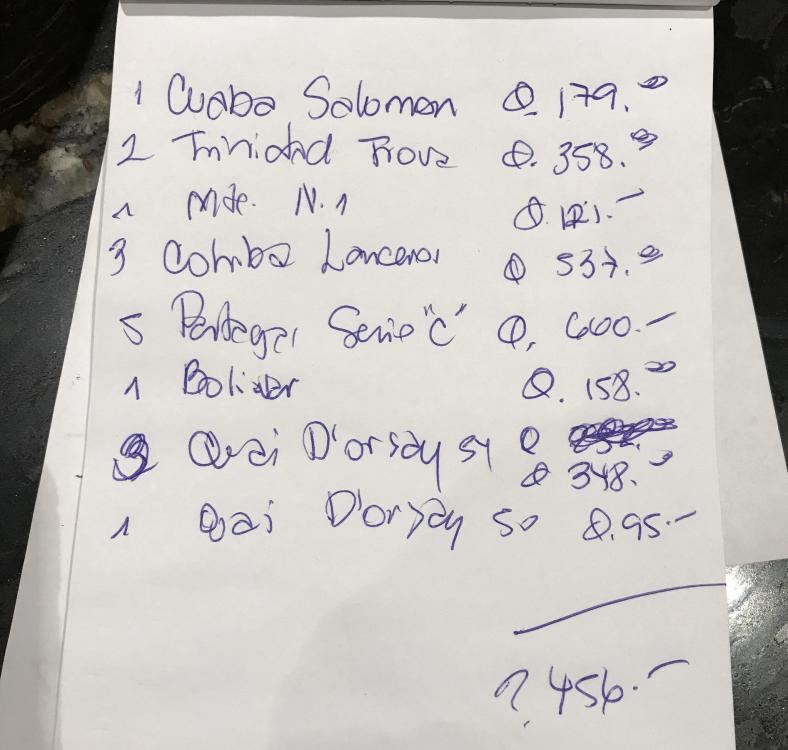 1 Cuaba Salomon Q. 179.00
2 Trinidad Trova Q. 358.00
1 Mte. N.1 Q. 121.-
3 Cohiba Lanceros Q 537.00
5 Partagas Serie "C" Q. 660.-
1 Bolivar Q. 158.00
3 Quai D'orsay 54 Q
Q 348.-
1 Quai D'orsay 50 Q.95.-
2,456.-